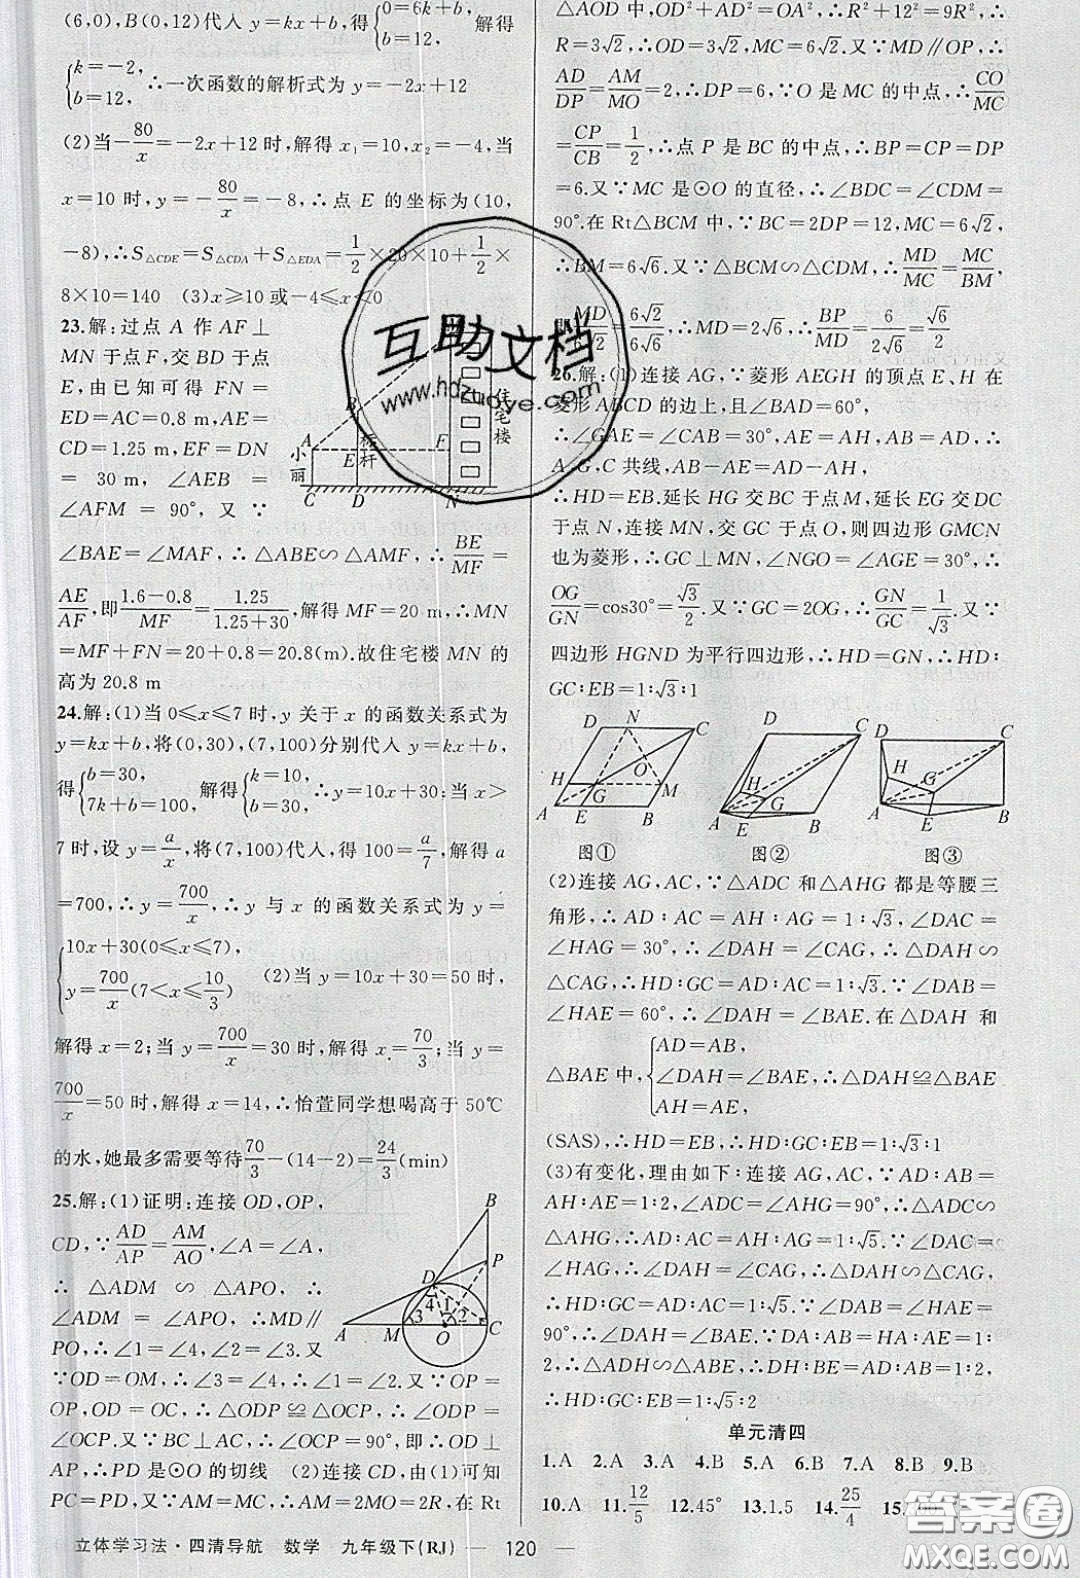 (6,0),B(0,12)代入 y=kx+b,得{0=6k+b, b=12, 解得
{k=-2, b=12, ∴一次函数的解析式为 y=-2x+12
(2)当-80/x=-2x+12时,解得 x₁=10,x₂=-4,当
x=10 时,-80/x=-8,∴点 E 的坐标为(10,
-8),∴S△CDE=S△CDA+S△EDA=1/2×20×10+1/2×
8×10=140 (3)x≥10 或-4≤x<0
23.解:过点 A 作 AF⊥
MN 于点 F,交 BD 于点
E,由已知可得 FN=
ED=AC=0.8 m,AE=
CD=1.25 m,EF=DN
=30 m,∠AEB=
∠AFM=90°,又∵
∠BAE=∠MAF,∴△ABE∽△AMF,∴BE/MF=
AE/AF,即(1.6-0.8)/MF=1.25/(1.25+30),解得 MF=20 m,∴MN
=MF+FN=20+0.8=20.8(m).故住宅楼 MN 的
高为 20.8 m
B
A
E
F
小丽
标杆
住宅楼
C
D
N
24.解:(1)当 0≤x≤7 时,y 关于 x 的函数关系式为
y=kx+b,将(0,30),(7,100)分别代入 y=kx+b,
得{b=30, 7k+b=100, 解得{k=10, b=30, ∴y=10x+30;当 x>
7 时,设 y=a/x,将(7,100)代入,得 100=a/7,解得 a
=700,∴y=700/x,∴y 与 x 的函数关系式为 y=
{10x+30(0≤x≤7), y=700/x(7<x≤10/3) (2)当 y=10x+30=50 时,
解得 x=2;当 y=700/x=30 时,解得 x=70/3;当 y=
700/x=50 时,解得 x=14,∴怡萱同学想喝高于 50℃
的水,她最多需要等待70/3-(14-2)=24/3(min)
25.解:(1)证明:连接 OD,OP,
CD,∵AD/AP=AM/AO,∠A=∠A,
∴△ADM∽△APO,∴
∠ADM=∠APO,∴MD∥
PO,∴∠1=∠4,∠2=∠3.又
∵OD=OM,∴∠3=∠4,∴∠1=∠2.又∵OP=
OP,OD=OC,∴△ODP≌△OCP,∴∠ODP=
∠OCP.又∵BC⊥AC,∴∠OCP=90°,即 OD⊥
AP,∴PD是⊙O的切线 (2)连接CD,由(1)可知
PC=PD,又∵AM=MC,∴AM=2MO=2R,在 Rt
B
P
D
4 1
3 2
A
M
O
C
△AOD 中,OD²+AD²=OA²,∴R²+12²=9R²,∴
R=3√2,∴OD=3√2,MC=6√2.又∵MD∥OP,∴
AD/DP=AM/MO=2,∴DP=6,∵O 是 MC 的中点,∴CO/MC
=CP/CB=1/2,∴点 P 是 BC 的中点,∴BP=CP=DP
=6.又∵MC 是⊙O 的直径,∴∠BDC=∠CDM=
90°.在 Rt△BCM 中,∵BC=2DP=12,MC=6√2,
∴BM=6√6.又∵△BCM∽△CDM,∴MD/MC=MC/BM,
即MD/6√2=6√2/6√6,∴MD=2√6,∴BP/MD=6/2√6=√6/2
26.解:(1)连接 AG,∵菱形 AEGH 的顶点 E、H 在
菱形 ABCD 的边上,且∠BAD=60°,
∴∠GAE=∠CAB=30°,AE=AH,AB=AD,∴
A,G,C 共线,AB-AE=AD-AH,
∴HD=EB.延长 HG 交 BC 于点 M,延长 EG 交 DC
于点 N,连接 MN,交 GC 于点 O,则四边形 GMCN
也为菱形,∴GC⊥MN,∠NGO=∠AGE=30°,∴
OG/GN=cos30°=√3/2.又∵GC=2OG,∴GN/GC=1/√3.又∵
四边形 HGND 为平行四边形,∴HD=GN,∴HD∶
GC∶EB=1∶√3∶1
D N C
H O M
G
A E B
图①
D C
H
G
A E B
图②
D C
H
G
A E B
图③
(2)连接 AG,AC,∵△ADC 和△AHG 都是等腰三
角形,∴AD∶AC=AH∶AG=1∶√3,∠DAC=
∠HAG=30°,∴∠DAH=∠CAG,∴△DAH∽
△CAG,∴HD∶GC=AD∶AC=1∶√3,∵∠DAB=
∠HAE=60°,∴∠DAH=∠BAE.在△DAH 和
△BAE 中,{AD=AB, ∠DAH=∠BAE, AH=AE, ∴△DAH≌△BAE
(SAS),∴HD=EB,∴HD∶GC∶EB=1∶√3∶1
(3)有变化,理由如下:连接 AG,AC,∵AD∶AB=
AH∶AE=1∶2,∠ADC=∠AHG=90°,∴△ADC∽
△AHG,∴AD∶AC=AH∶AG=1∶√5,∵∠DAC=
∠HAG,∴∠DAH=∠CAG,∴△DAH∽△CAG,
∴HD∶GC=AD∶AC=1∶√5,∵∠DAB=∠HAE=
90°,∴∠DAH=∠BAE,又∵DA∶AB=HA∶AE=1∶
2,∴△ADH∽△ABE,∴DH∶BE=AD∶AB=1∶2,
∴HD∶GC∶EB=1∶√5∶2
单元清四
1.A 2.A 3.A 4.B 5.A 6.B 7.A 8.B 9.B
10.A 11.12/5 12.45° 13.1.5 14.25/4 15.
立体学习法·四清导航 数学 九年级下(RJ) — 120 —
互助文档
www.hdzuoye.com
答案圈
MXQE.COM